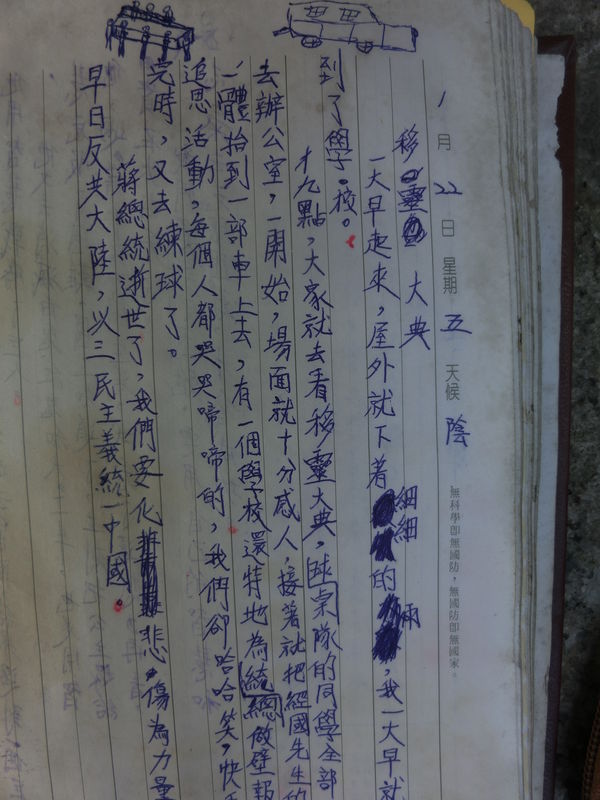 1月22日 星期五 天候 陰
無科學即無國防，無國防即無國家。
移靈大典
一大早起來，屋外就下著細細的雨，我一大早就
到了學校。
才九點，大家就去看移靈大典，桌隊的同學全部
去辦公室，一開始，場面就十分感人，接著就把經國先生的
體抬到一部車上去，有一個學校還特地為總統做壁報
追思活動，每個人都哭哭啼啼的，我們卻哈哈笑，快
完時，又去練球了。
蔣總統逝世了，我們要化悲傷為力量
早日反共大陸，以三民主義統一中國。